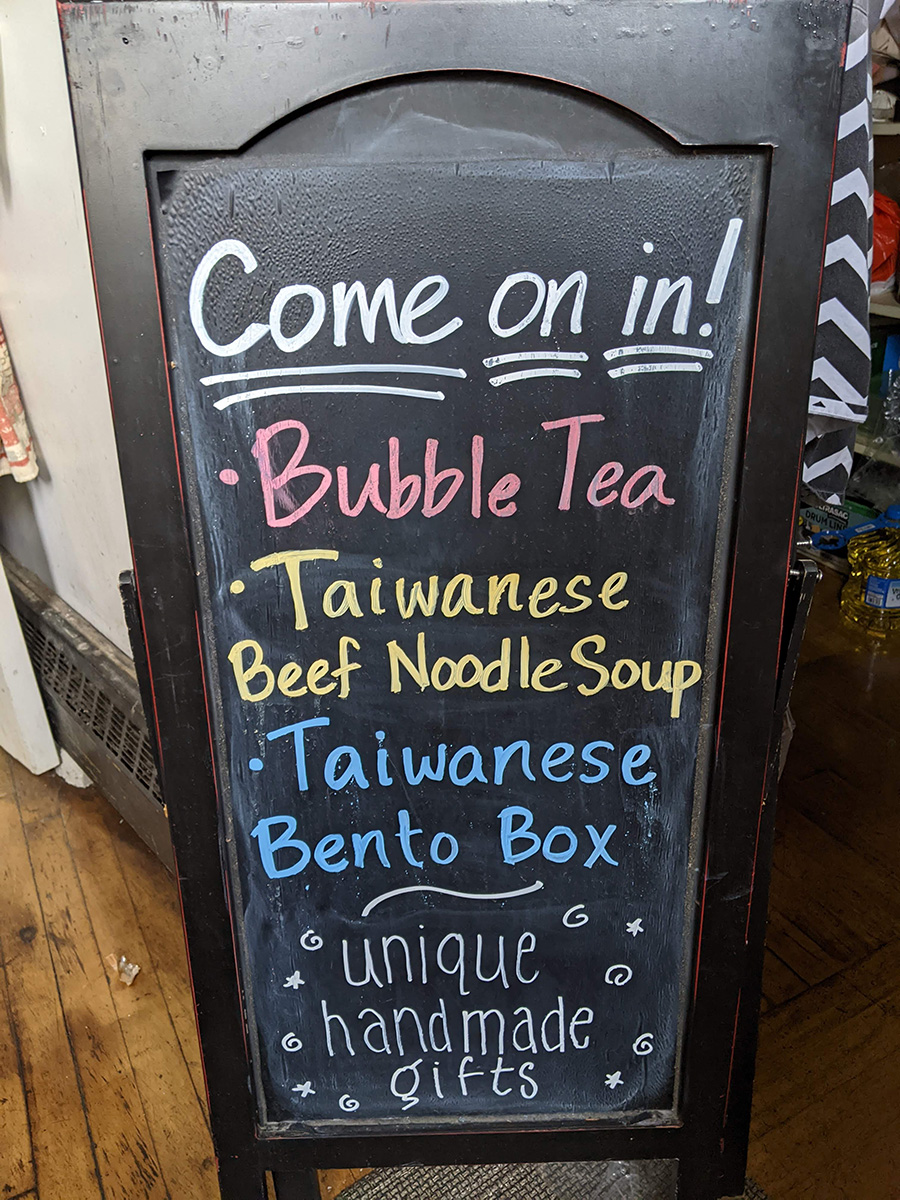 Come on in!
• Bubble Tea
• Taiwanese
Beef Noodle Soup
• Taiwanese
Bento Box
unique
handmade
gifts